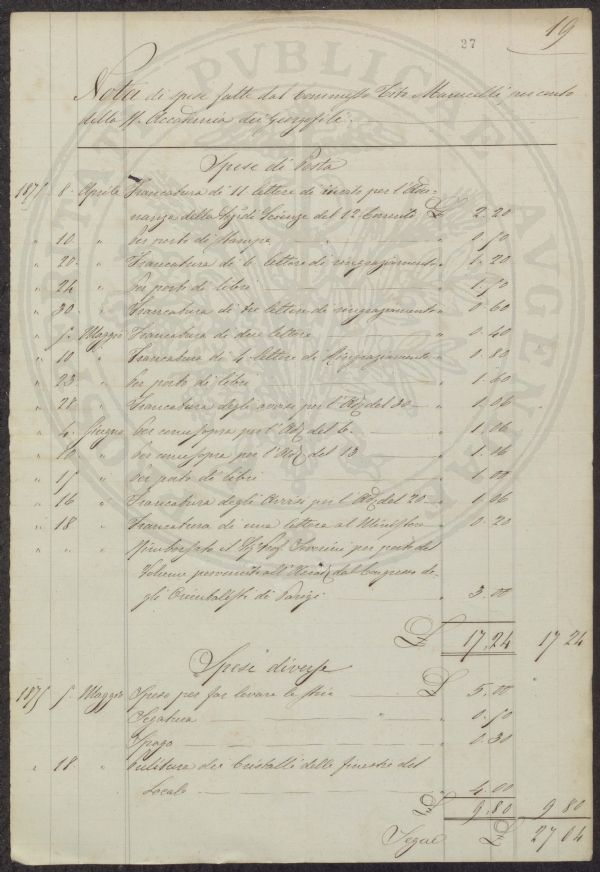 19
27
Nota di spese fatte dal Commesso Tito Marucelli, per conto
della R. Accademia dei Georgofili.
Spese di Posta
1875 8. Aprile Francatura di 11 lettere di invito per l'Adu-
nanza della di Scienze del 12 Corrente £ 2.20
" 10. " Per porto di stampe " 0.50
" 20. " Francatura di 6 lettere di ringraziamento " 1.20
" 24 " Per porto di libri " 1.50
" 30. " Francatura di tre lettere di ringraziamento " 0.60
" 5. Maggio Francatura di due lettere " 0.40
" 10. " Francatura di 4 lettere di Ringraziamento " 0.80
" 23. " Per porto di libri " 1.60
" 28. " Francatura degli avvisi per l'Adz. del 30 " 1.06
" 4. Giugno Per come sopra per l'Adz. del 6. " 1.06
" 10 " Per come sopra per l'Adz. del 13 " 1.16
" 15 " Per porto di libri " 1.00
" 16 " Francatura degli Avvisi per l'Adz. del 20 " 1.06
" 18 " Francatura di una lettera al Ministero " 0.20
" " " Rimborsato al Sig. Prof. Severini per porto del
Volume pervenuto all'Accad. dal Congresso de-
gli Orientalisti di Parigi " 3.00
£ 17.24 17 24
Spese diverse
1875 5. Maggio Spese per far levare le stuie £ 5.00
Segatura " 0.50
Spago " 0.30
" 18. " Pulitura dei Cristalli delle finestre del
Locale 4.00
£ 9.80 9.80
Segue £ 27 04
PVBLICAE AVGENDAE